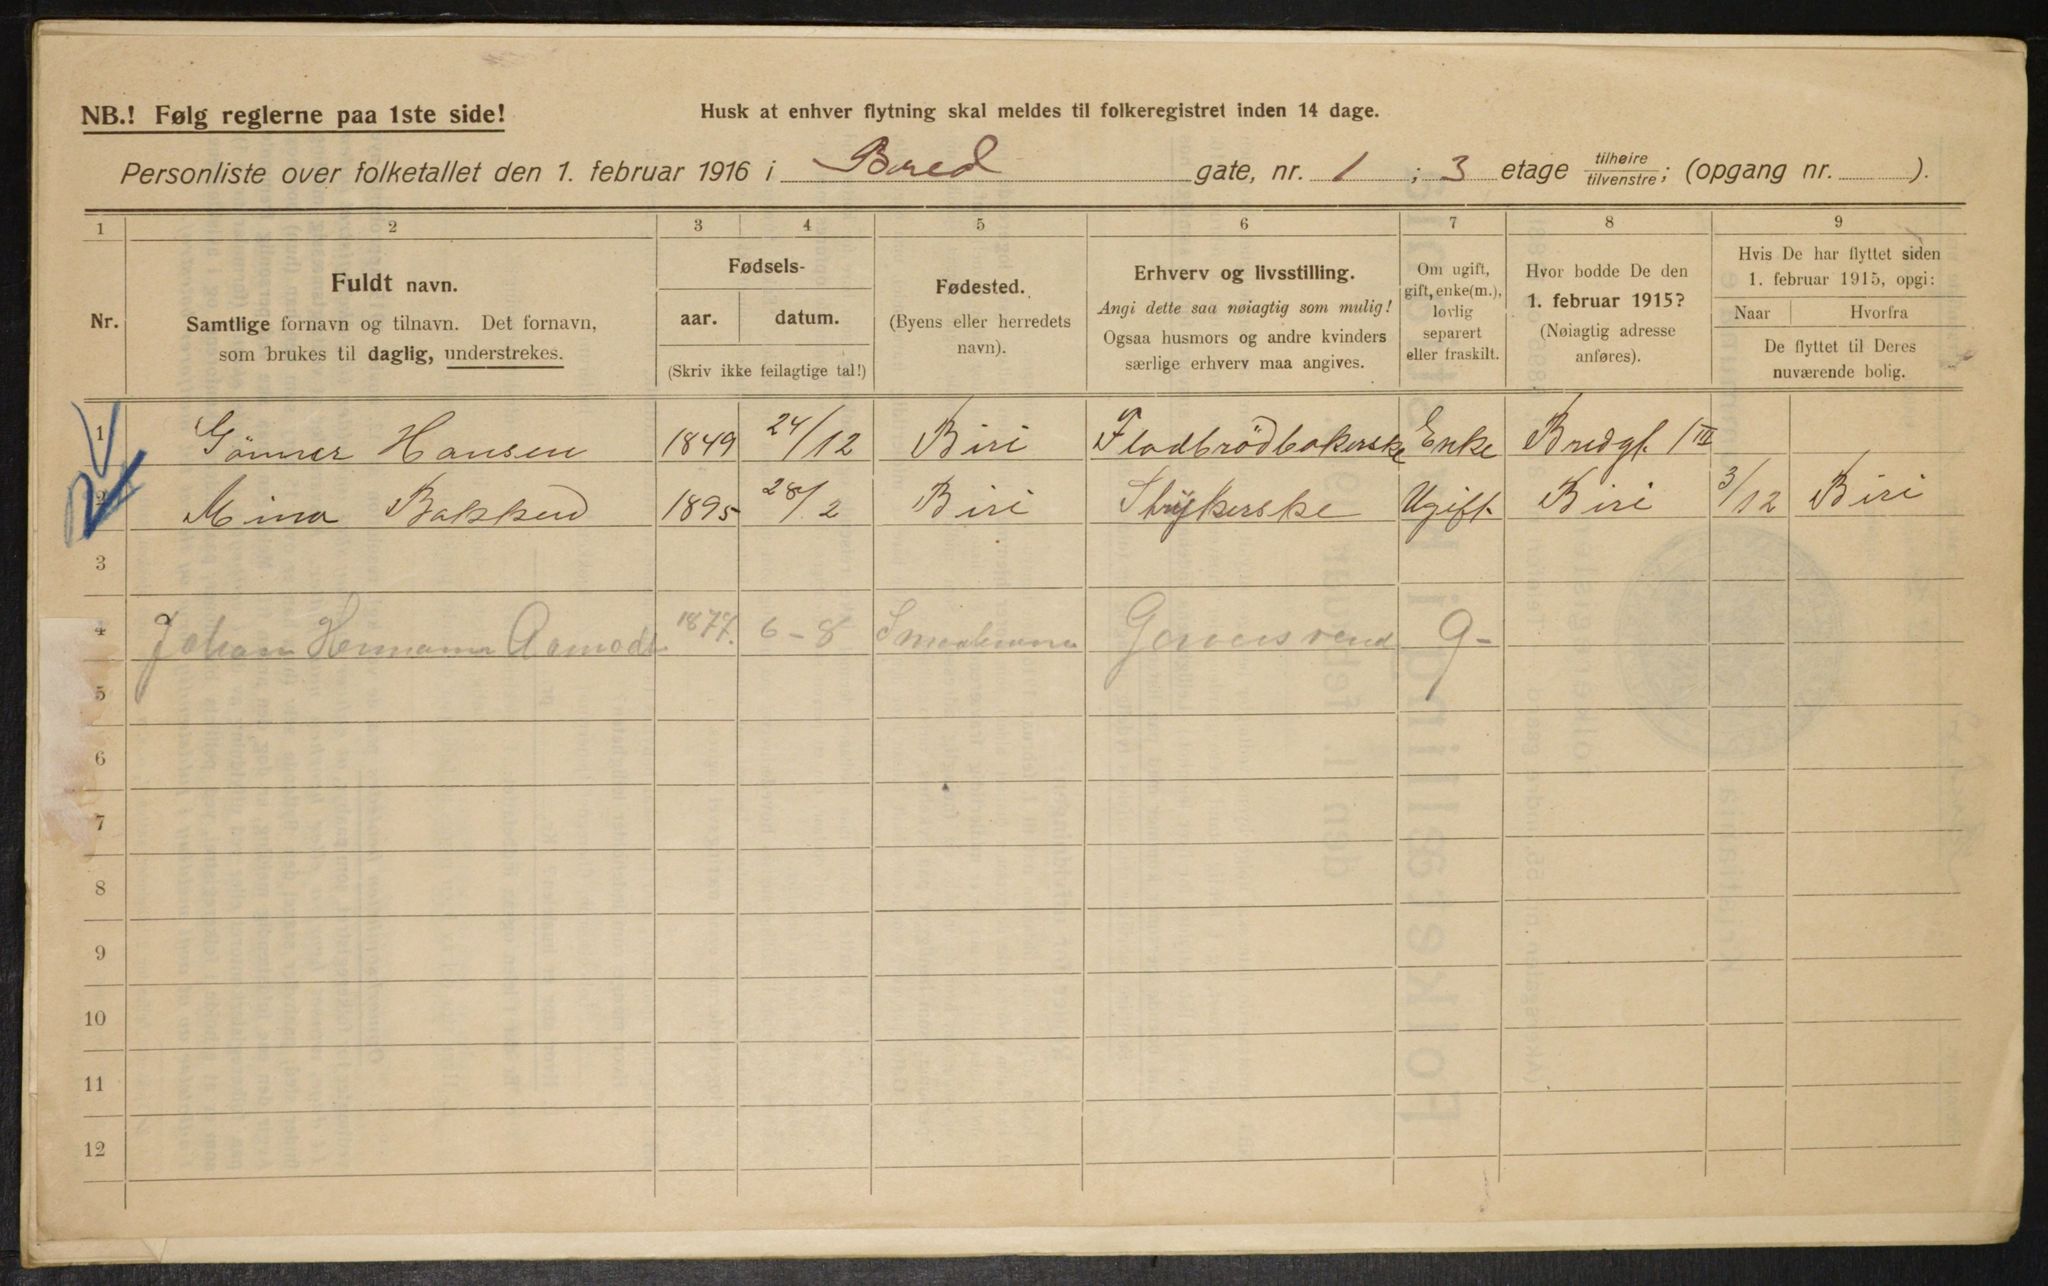 NB.! Følg reglerne paa 1ste side!
Husk at enhver flytning skal meldes til folkeregistret inden 14 dage.
Personliste over folketallet den 1. februar 1916 i Bred gate, nr. 1 ; 3 etage tilhøire/tilvenstre; (opgang nr. ).
1 2 3 4 5 6 7 8 9
Nr.
Fuldt navn.
Samtlige fornavn og tilnavn. Det fornavn,
som brukes til daglig, understrekes.
Fødsels-
aar. datum.
(Skriv ikke feilagtige tal!)
Fødested.
(Byens eller herredets
navn).
Erhverv og livsstilling.
Angi dette saa nøiagtig som mulig!
Ogsaa husmors og andre kvinders
særlige erhverv maa angives.
Om ugift,
gift, enke(m.),
lovlig
separert
eller fraskilt.
Hvor bodde De den
1. februar 1915?
(Nøiagtig adresse
anføres).
Hvis De har flyttet siden
1. februar 1915, opgi:
Naar Hvorfra
De flyttet til Deres
nuværende bolig.
1 Hansen 1849 24/12 Biri Fladbrödbakerske Enke Bredgt. 1 III
2 Mina Bakken 1895 28/2 Biri Strykerske Ugift. Biri 3/12 Biri
3
4 Johan Hermann Aamodt 1877. 6-8 G-
5
6
7
8
9
10
11
12